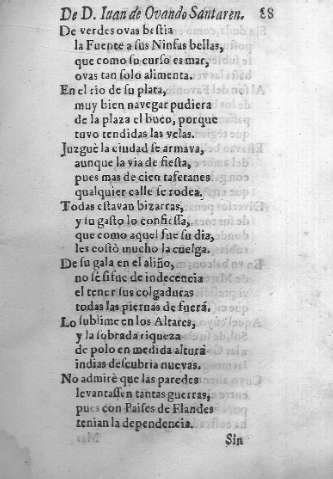 De D. Iuan de Ovando Santaren. 28
De verdes ovas bestia
la Fuente a sus Ninfas bellas,
que como su curso es mar,
ovas tan solo alimenta.
En el rio de su plata,
muy bien navegar pudiera
de la plaza el buco, porque
tuvo tendidas las velas.
Juzguè la ciudad se armava,
aunque la via de fiesta,
pues mas de cien tafetanes
qualquier calle se rodea.
Todas estavan bizarras,
y su gasto lo confiessa,
que como aquel fue su dia,
les costò mucho la cuelga.
De su gala en el aliño,
no sè si fue de indecencia
el tener sus colgaduras
todas las piernas de fuerà.
Lo sublime en los Altares,
y la sobrada riqueza
de polo en medida altura
indias descubria nuevas.
No admirè que las paredes
levantassen tantas guerras,
pues con Paises de Flandes
tenian la dependencia.
Sin